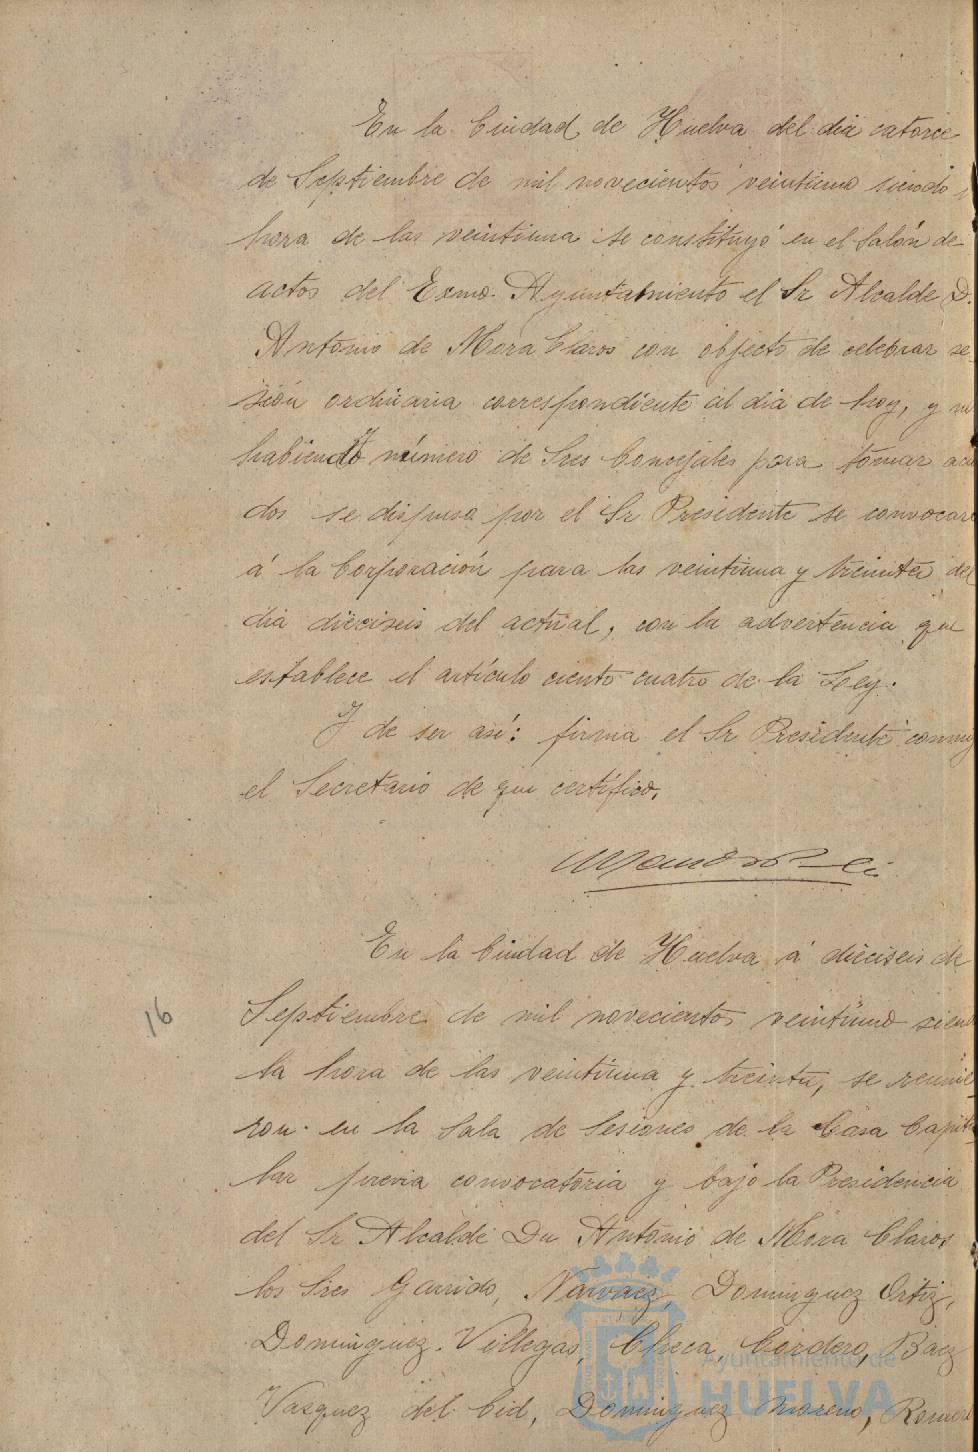 En la Ciudad de Huelva del dia catorce
de Septiembre de mil novecientos veintiuno siendo
hora de las veintiuna se constituyó en el Salón de
actos del Excmo. Ayuntamiento el Sr Alcalde D.
Antonio de Mora Claros con objecto de celebrar se-
sión ordinaria correspondiente al dia de hoy, y no
habiendo número de Sres Concejales para tomar acuer
dos se dispuso por el Sr Presidente se convocara
á la Corporación para las veintiuna y treinta del
dia dieciseis del actual, con la advertencia que
establece el artículo ciento cuatro de la Ley.
Y de ser así: firma el Sr Presidente conmigo
el Secretario de que certifico.
En la Ciudad de Huelva á dieciseis de
16
Septiembre de mil novecientos veintiuno siendo
la hora de las veintiuna y treinta, se reunie-
ron en la Sala de Sesiones de la Casa Capitu-
lar previa convocatoria y bajo la Presidencia
del Sr Alcalde Dn Antonio de Mora Claros
los Sres Garrido, Narvaez, Dominguez Ortiz,
Dominguez Villegas, Checa, Cordero, Baez
Vazquez del Cid, Dominguez Moreno, Romero
Ayuntamiento de
HUELVA